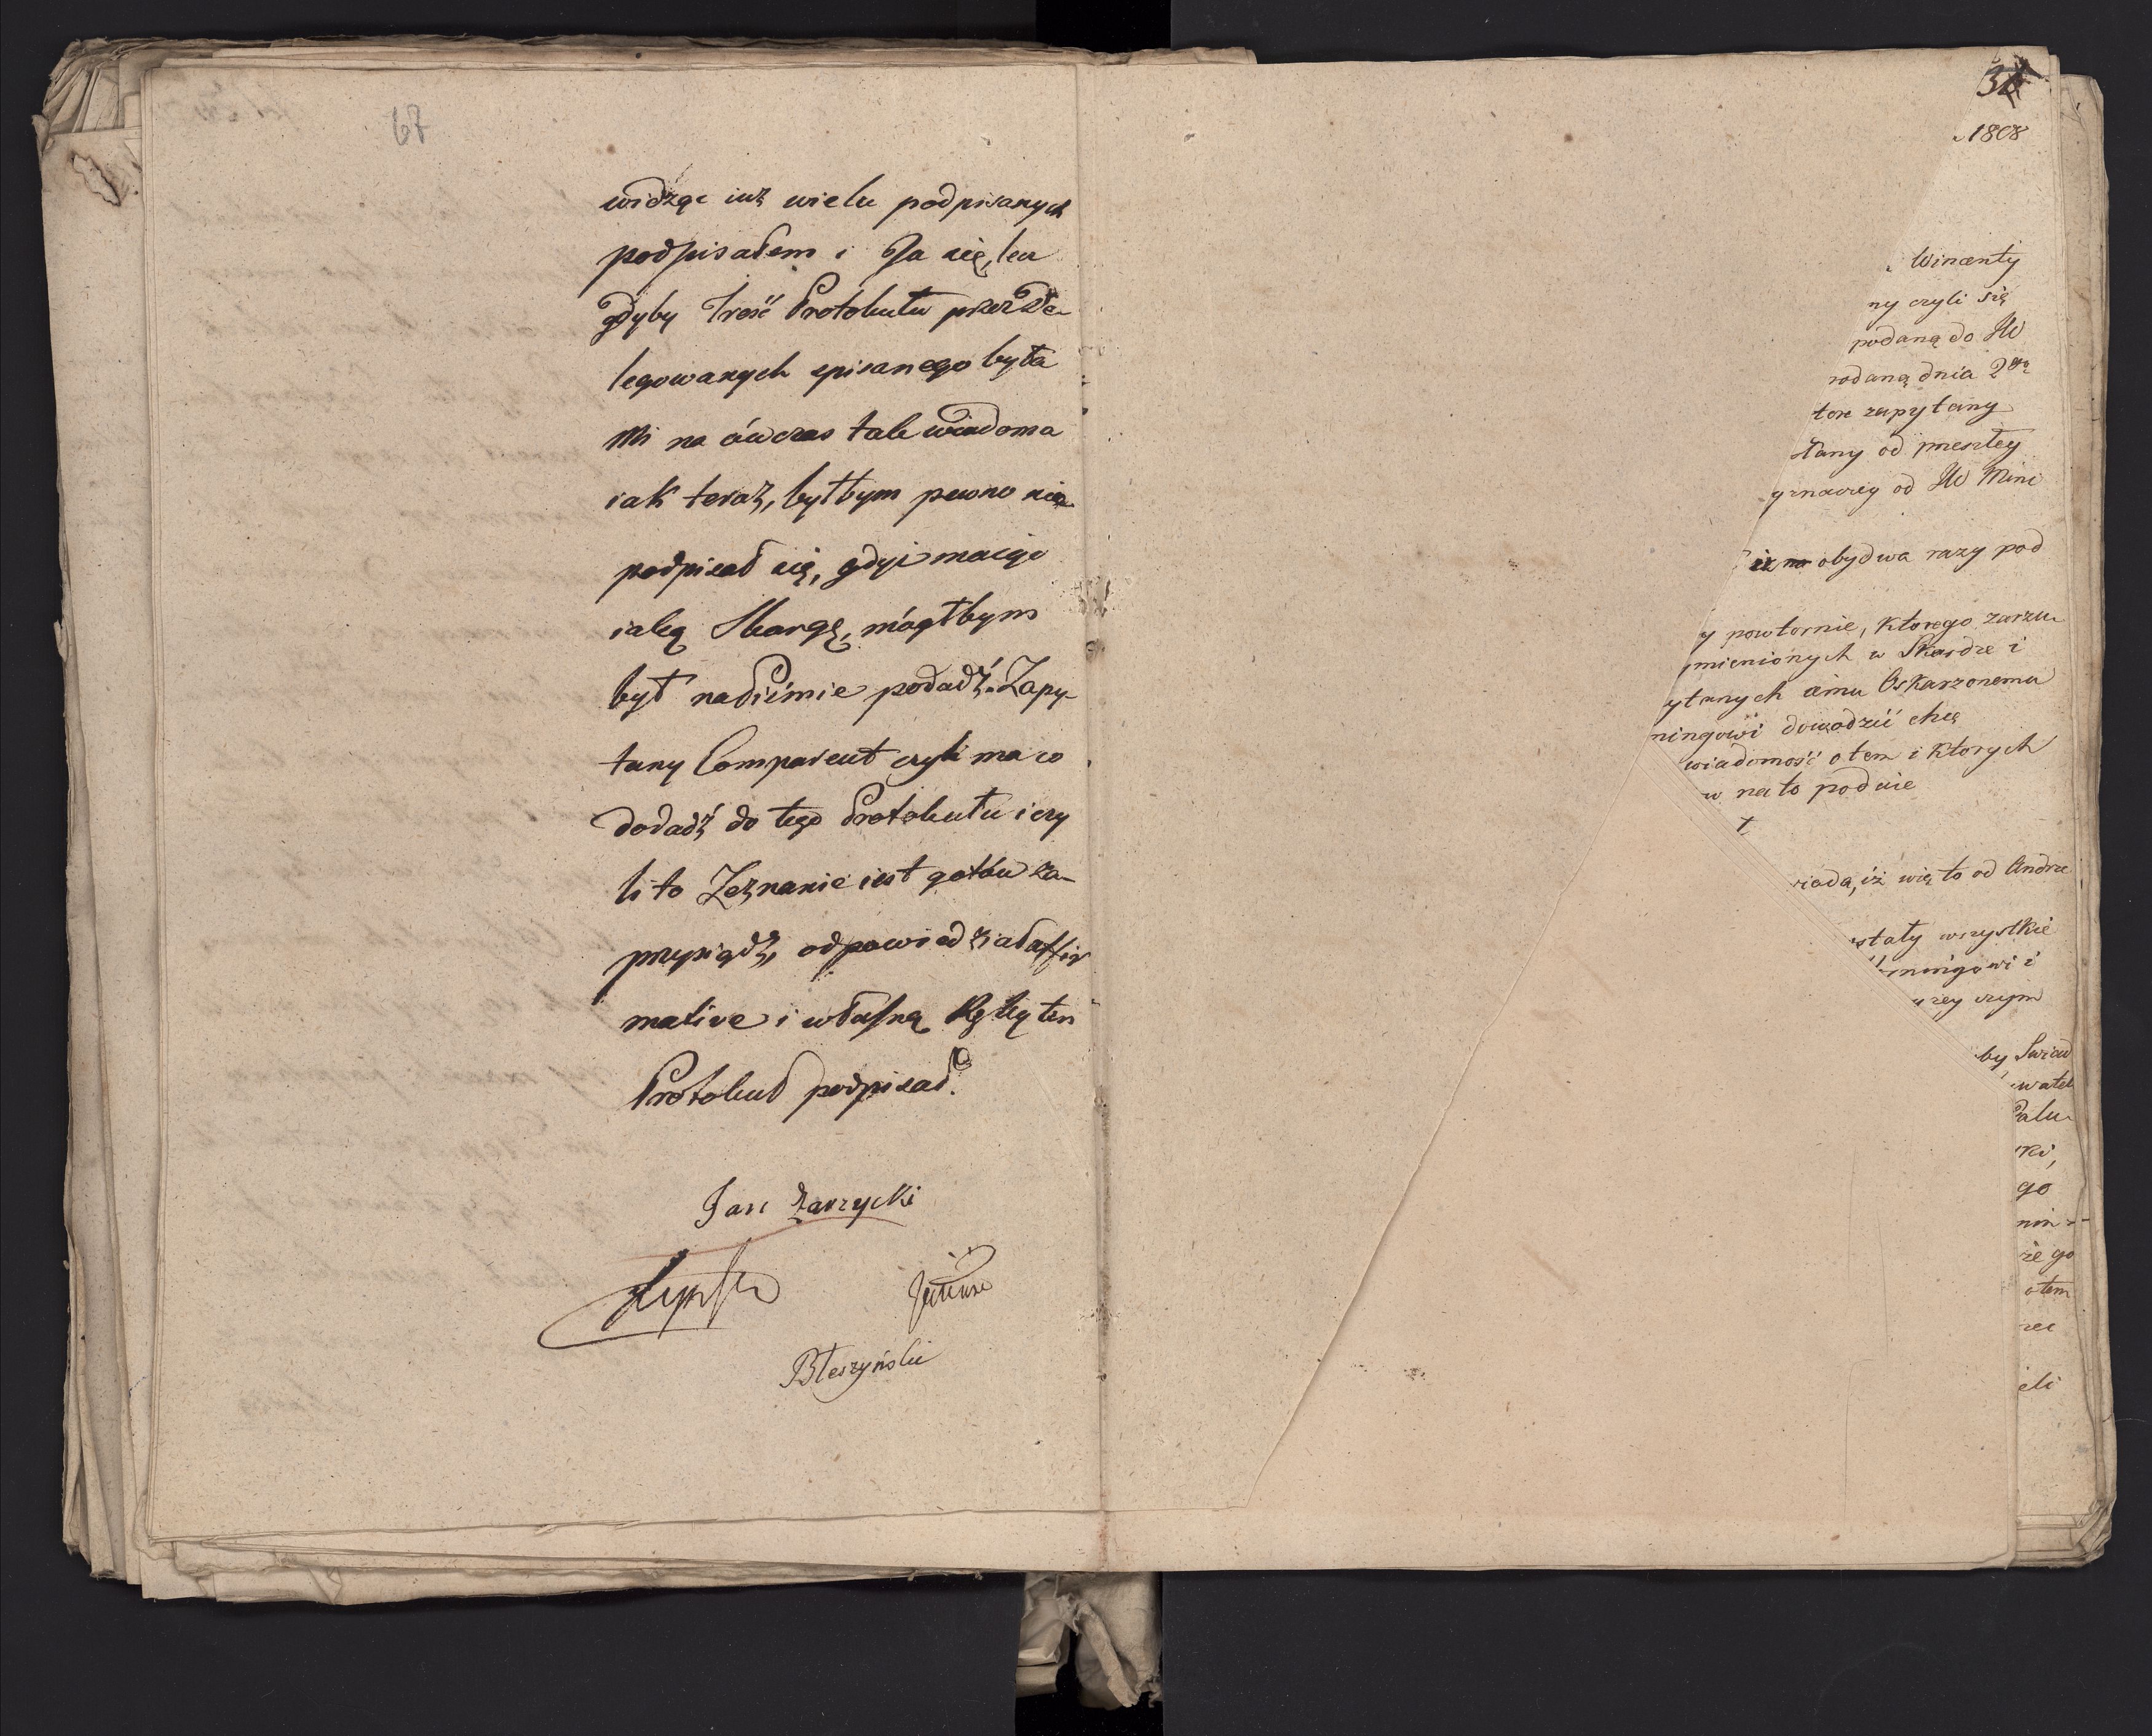 67
widząc iuż wielu podpisanych
podpisałem i Ja się, lecz
gdyby Treść Protokułu przez De-
legowanych spisanego była
Mi na ówczas tak wiadoma
iak teraz, byłbym pewno nie
podpisał się, gdyż maiąc
iaką Skargę, mógłbym
był na Piśmie podadź. Zapy-
tany Comparent czyli ma co
dodadź do tego Protokułu i czy
li to Zeznanie iest gotów za-
przysiądz, odpowiedział affir
mative i własną Ręką ten
Protokuł podpisał.
Jan Zarzycki
Błeszyński
1808
Wincenty
ny czyli się
podaną do JW
rodaną dnia 2go
tore zapytany
słany od przeszłey
yznawey od JW Mini
iż obydwa razy pod
y powtornie, którego zarzu
mienionych w Skardze i
ytanych aimu Oskarzonemu
ningowi dowodzić chcę
wiadomość o tem i ktorych
w na to podaie
riada, iż wię to od Andrze
stały wszystkie
mingowi i
urey czym
by Swiad
watel
Palu
ski,
go
nin
że go
otem
rec
eli